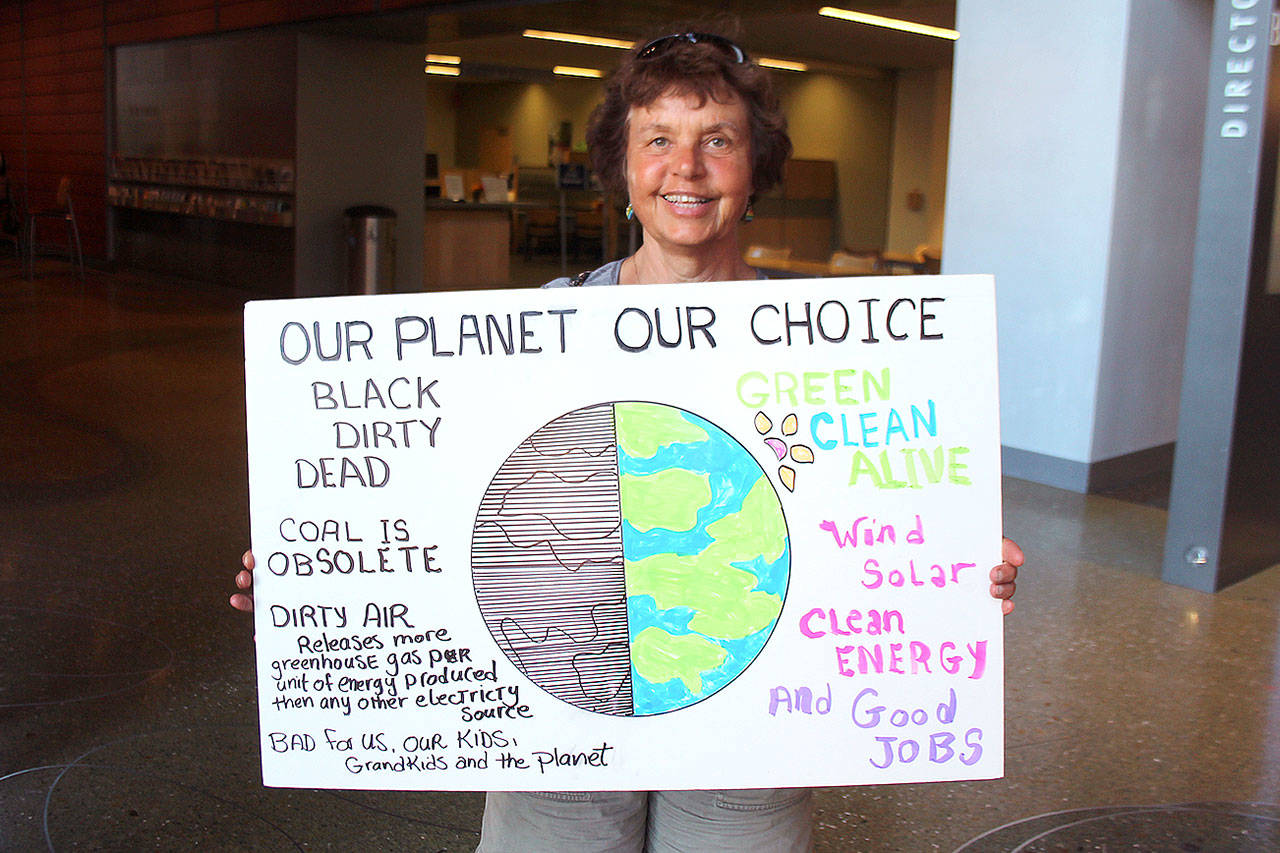 OUR PLANET OUR CHOICE
BLACK
DIRTY
DEAD
COAL IS
OBSOLETE
DIRTY AIR
Releases more
greenhouse gas per
unit of energy produced
then any other electricty
source
BAD for US, OUR KIDS,
GrandKids and the Planet
GREEN
CLEAN
ALIVE
Wind
Solar
Clean
ENERGY
And Good
JOBS
DIRECTO